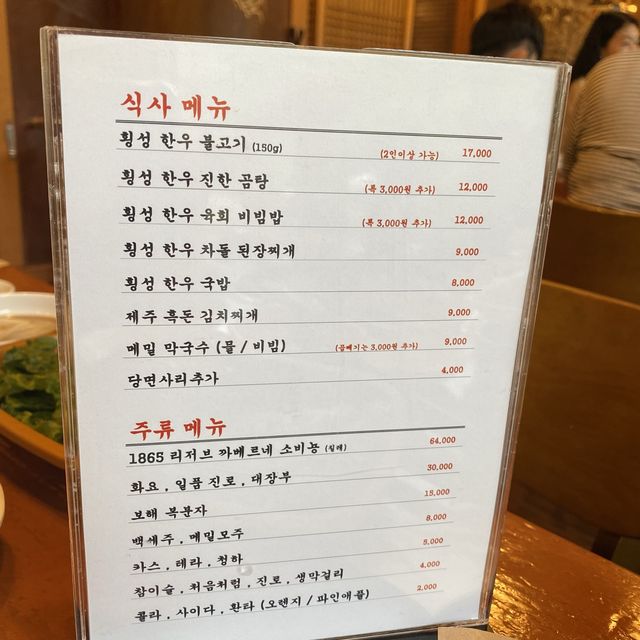 식사 메뉴
횡성 한우 불고기 (150g) (2인이상 가능) 17,000
횡성 한우 진한 곰탕 (특 3,000원 추가) 12,000
횡성 한우 육회 비빔밥 (특 3,000원 추가) 12,000
횡성 한우 차돌 된장찌개 9,000
횡성 한우 국밥 8,000
제주 흑돈 김치찌개 9,000
메밀 막국수 (물 / 비빔) (곱빼기는 3,000원 추가) 9,000
당면사리추가 4,000
주류 메뉴
1865 리저브 까베르네 소비뇽 (칠레) 64,000
화요 , 일품 진로 , 대장부 30,000
보해 복분자 15,000
백세주 , 메밀모주 8,000
카스 , 테라 , 청하 5,000
참이슬 , 처음처럼 , 진로 , 생막걸리 4,000
콜라 , 사이다 , 환타 (오렌지 / 파인애플) 2,000